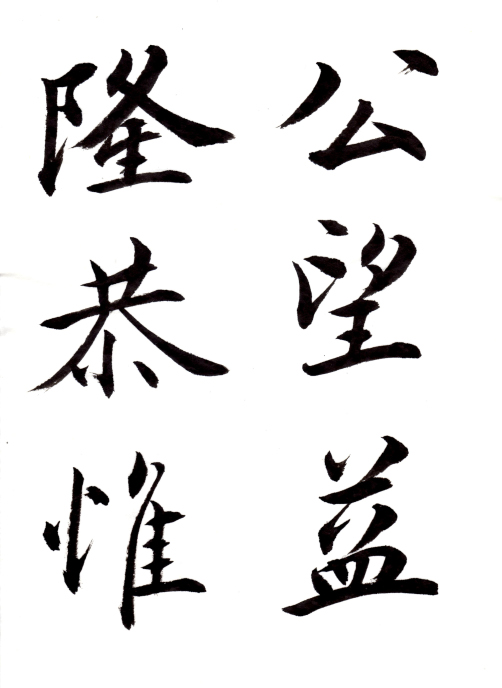 公望益
隆恭惟